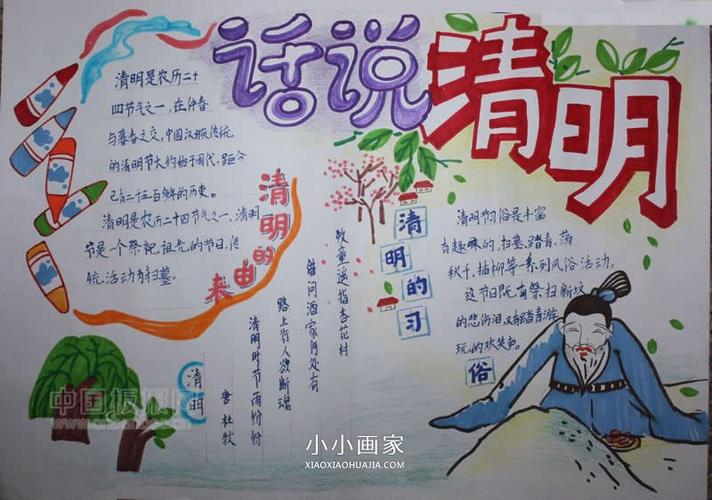 话说清明
清明是农历二十
四节气之一,在仲春
与暮春之交,中国汉族传统
的清明节大约始于周代,距今
已有二千五百多年的历史。
清明是农历二十四节气之一,清明
节是一个祭祀祖先的节日,传
统活动为扫墓。
清明的由来
清明
唐 杜牧
清明时节雨纷纷
路上行人欲断魂
借问酒家何处有
牧童遥指杏花村
清明的习俗
清明节习俗是丰富
有趣的,扫墓、踏青、荡
秋千、插柳等一系列风俗活动。
这节日既有祭扫新坟
的悲伤泪,又有踏青游
玩的欢笑声。
中国板报网
小小画家
XIAOXIAOHUAJIA.COM